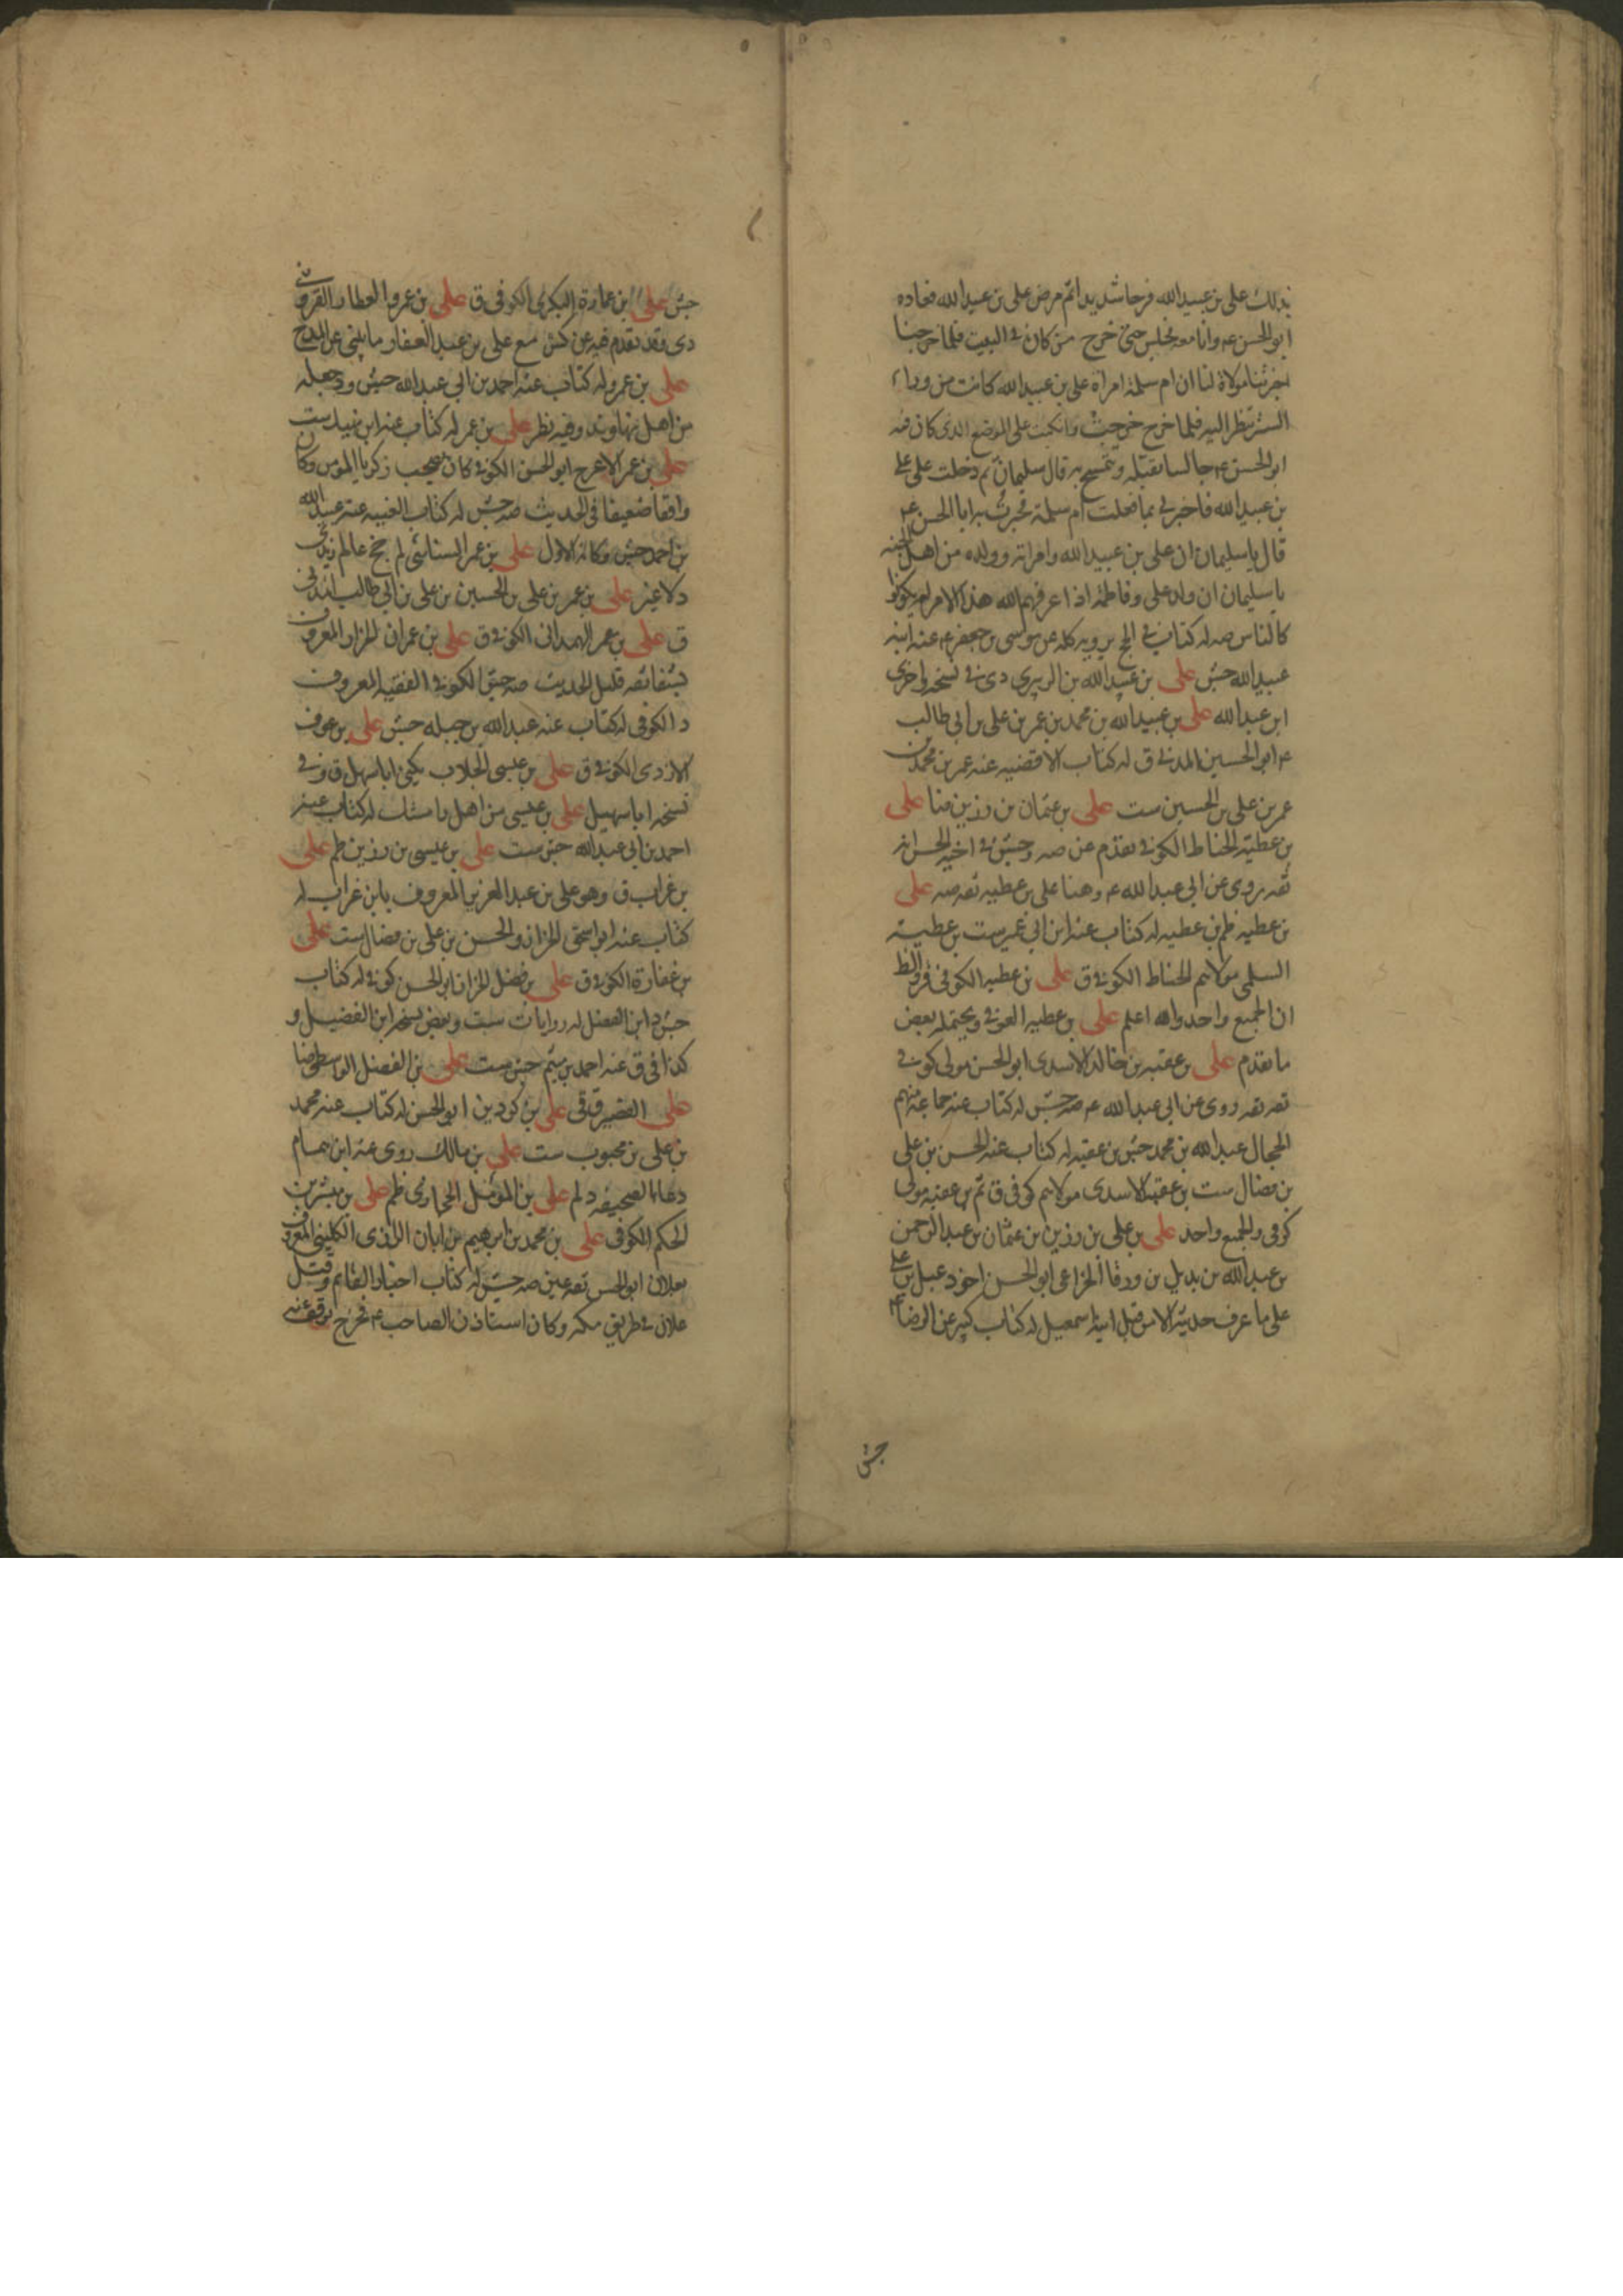 بذلك علي بن عبيد الله فرحا شديدا ثم مرض علي بن عبيد الله فعاده
ابو الحسن ع وانا معه فجلس حتى خرج من كان في البيت فلما خرجنا
اخبرتنا مولاة لنا ان ام سلمة امراة علي بن عبيد الله كانت من وراء
الستر تنظر اليه فلما خرج خرجت وانكبت على الموضع الذي كان فيه
ابو الحسن ع جالسا تقبله وتتمسح به قال سليمان ثم دخلت على علي
بن عبيد الله فاخبرني بما فعلت ام سلمة فخبرت به ابا الحسن ع
قال يا سليمان ان علي بن عبيد الله وامراته وولده من اهل الجنة
يا سليمان ان ولد علي وفاطمة اذا عرفهم الله هذا الامر لم يكونوا
كالناس صه له كتاب في الحج يرويه كله عن موسى بن جعفر ع عنه ابنه
عبيد الله جش علي بن عبيد الله بن الزبيري دي في نسخة واخرى
ابن عبد الله علي بن عبيد الله بن محمد بن عمر بن علي بن ابي طالب
ع ابو الحسين المدني ق له كتاب الاقضيه عنه عمر بن محمد بن
عمر بن علي بن الحسين ست علي بن عثمان بن رزين ضا علي
بن عطية الحناط الكوفي تقدم عن صه وجش في اخيه الحسن انه
ثقه روى عن ابي عبد الله ع وهنا علي بن عطيه ثقه صه علي
بن عطيه ظم بن عطيه له كتاب عنه ابن ابي عمير ست بن عطية
السلمي مولاهم الحناط الكوفي ق علي بن عطيه الكوفي قر والظ
ان الجميع واحد والله اعلم علي بن عطيه العوفي ويحتمله بعض
ما تقدم علي بن عقبه بن خالد الاسدي ابو الحسن مولى كوفي
ثقه ثقه روى عن ابي عبد الله ع صه جش له كتاب عنه جماعة منهم
الحجال عبد الله بن محمد جش بن عقبه له كتاب عنه الحسن بن علي
بن فضال ست بن عقبة الاسدي مولاهم كوفي ق ثم بن عقبه مولى
كوفي والجميع واحد علي بن علي بن رزين بن عثمان بن عبد الرحمن
بن عبد الله بن بديل بن ورقا الخزاعي ابو الحسن اخو دعبل بن علي
علي ما عرف حديثه الا من قبل ابنه اسمعيل له كتاب كبير عن الرضا ع
جش
جش علي ابن عمارة البكري الكوفي ق علي بن عمرو العطار القزويني
دي وقد تقدم فيه عن كش مع علي بن عبد الغفار ما ينبئ عن المدح
علي بن عمرو له كتاب عنه احمد بن ابي عبد الله جش ود جعله
من اهل نهاوند وفيه نظر علي بن عمر له كتاب عنه ابن نهيك ست
علي بن عمر الاعرج ابو الحسن الكوفي كان صحب زكريا المؤمن وكان
واقفا ضعيفا في الحديث صه جش له كتاب الغيبه عنه عبيد الله
بن احمد جش وكانه الاول علي بن عمر لم جخ عالم زيدي
د لا غير علي بن عمر بن علي بن الحسين بن علي بن ابي طالب المدني
ق علي بن عمر الهمداني الكوفي ق علي بن عمران الخزاز المعروف
بشفا ثقه قليل الحديث صه جش الكوفي الفقيه المعروف
د الكوفي له كتاب عنه عبد الله بن جبله جش علي بن عوف
الازدي الكوفي ق علي بن عيسى الجلاب يكنى ابا سهل ق وفي
نسخة ابا سهيل علي بن عيسى من اهل رامشك له كتاب عنه
احمد بن ابي عبد الله جش ست علي بن عيسى بن رزين ظم علي
بن غراب ق وهو علي بن عبد العزيز المعروف بابن غراب له
كتاب عنه ابو اسحق الخزاز والحسن بن علي بن فضال ست علي
بن غفارة الكوفي ق علي بن فضل الخزاز ابو الحسن كوفي له كتاب
جش د ابن الفضل له روايات ست وبعض نسخه ابن الفضيل و
كذا في ق عنه احمد بن ميثم جش ست علي بن الفضل الواسطي ضا
علي القصير ق قي علي بن كردين ابو الحسن له كتاب عنه محمد
بن علي بن محبوب ست علي بن مالك روى عنه ابن همام
دعاء الصحيفه د لم علي بن المؤمل ظم علي بن مبشر بن
الحكم الكوفي علي بن محمد بن ابراهيم بن ابان الرازي الكليني المعروف
بعلان ابو الحسن ثقه عين صه جش له كتاب اخبار القائم وقتل
علان في طريق مكه وكان استاذن الصاحب ع فخرج توقف عنه